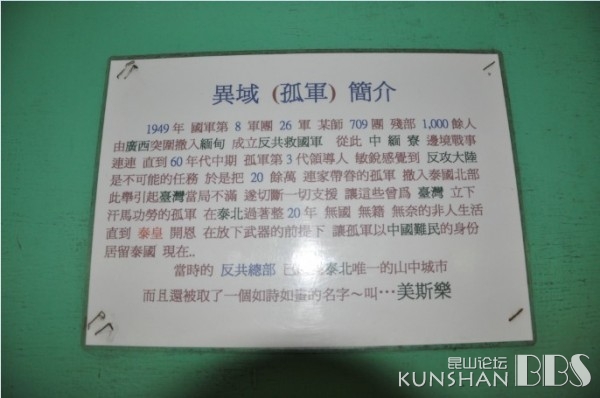 異域（孤軍）簡介
1949年 國軍第 8 軍團 26 軍 某師 709團 殘部 1,000餘人
由廣西突圍撤入緬甸 成立反共救國軍 從此 中 緬 寮 邊境戰事
連連 直到60年代中期 孤軍第3代領導人 敏銳感覺到 反攻大陸
是不可能的任務 於是把 20 餘萬 連家帶眷的孤軍 撤入泰國北部
此舉引起臺灣當局不滿 遂切斷一切支援 讓這些曾爲 臺灣 立下
汗馬功勞的孤軍 在泰北過著整20年 無國 無籍 無奈的非人生活
直到 泰皇 開恩 在放下武器的前提下 讓孤軍以中國難民的身份
居留泰國 現在..
當時的 反共總部 泰北唯一的山中城市
而且還被取了一個如詩如畫的名字～叫…美斯樂
昆山论坛
KUNSHAN BBS